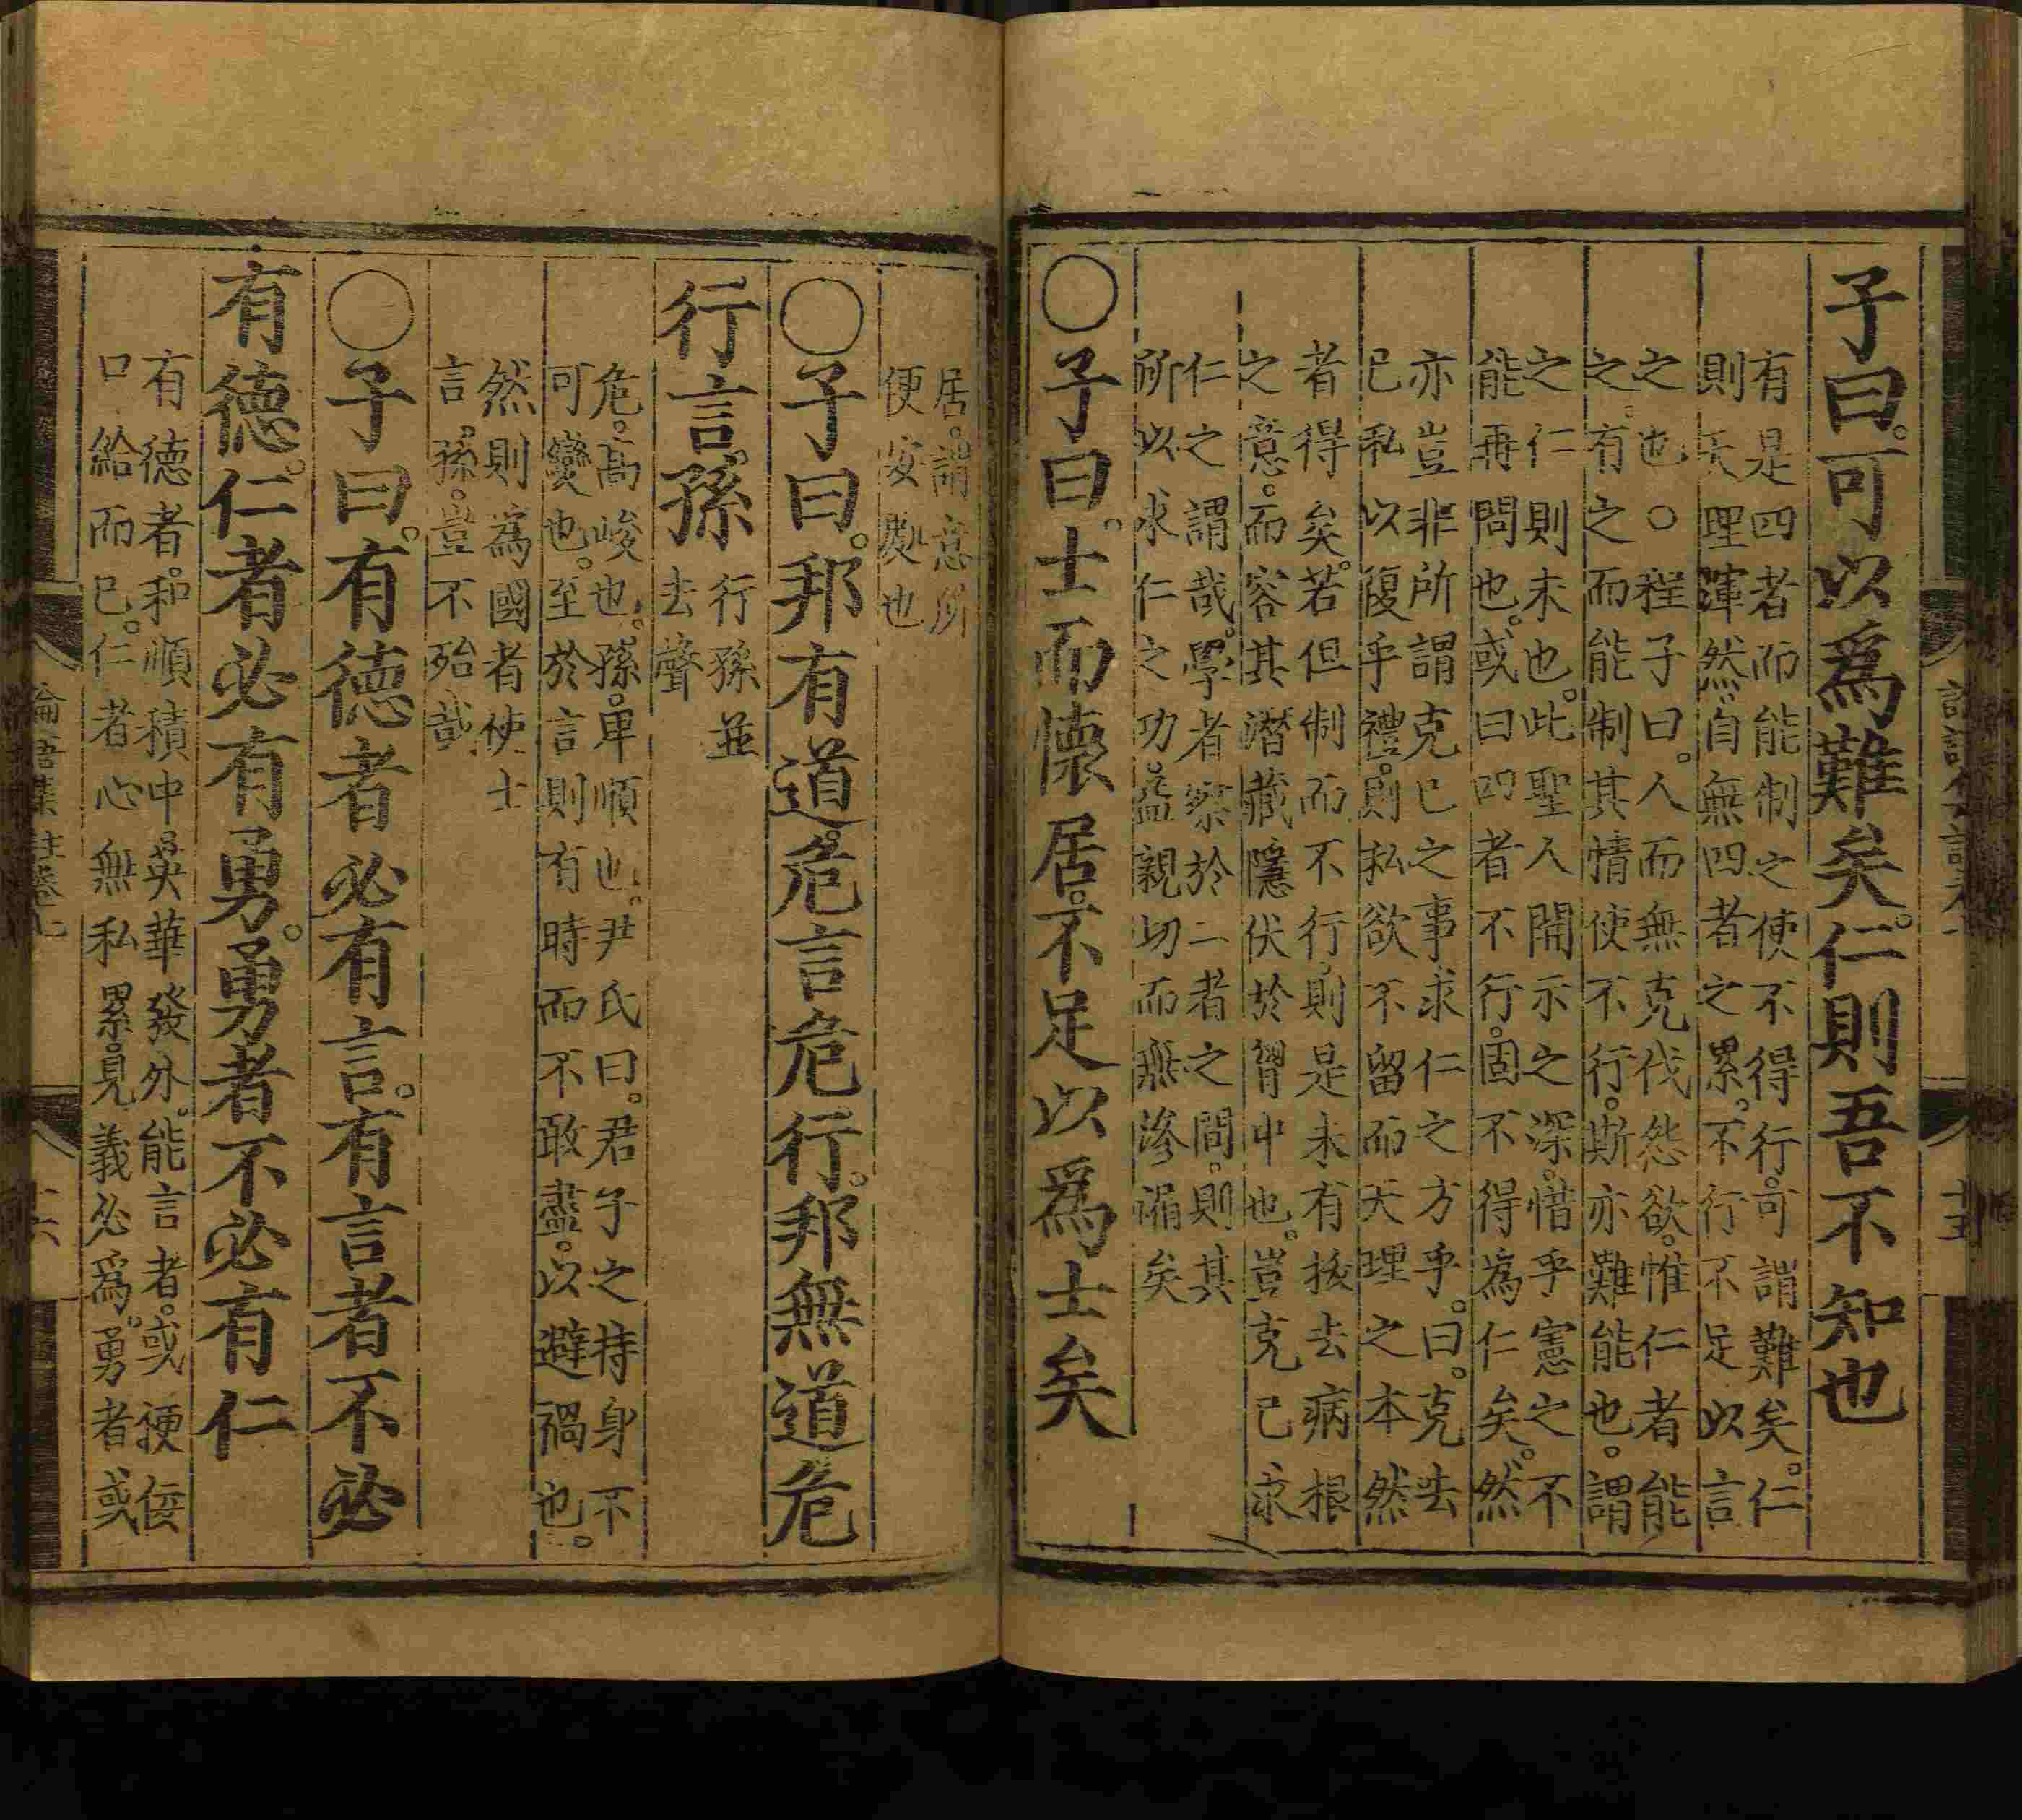 子曰。可以爲難矣。仁則吾不知也
有是四者而能制之使不得行。可謂難矣。仁
則天理渾然。自無四者之累。不行不足以言
之也○程子曰。人而無克伐怨欲。惟仁者能
之。有之而能制其情使不行。斯亦難能也。謂
之仁則未也。此聖人開示之深。惜乎憲之不
能再問也。或曰四者不行。固不得爲仁矣。然
亦豈非所謂克己之事求仁之方乎。曰。克去
己私以復乎禮。則私欲不留而天理之本然
者得矣。若但制而不行。則是未有拔去病根
之意。而容其潛藏隱伏於胷中也。豈克己求
仁之謂哉。學者察於二者之間。則其
所以求仁之功。益親切而無滲漏矣
○子曰。士而懷居。不足以爲士矣
居。謂意所
便安處也
○子曰。邦有道。危言危行。邦無道危
行言。孫
行孫並
去聲
危。高峻也。孫。卑順也。尹氏曰。君子之持身不
可變也。至於言則有時而不敢盡。以避禍也。
然則爲國者使士
言。孫。豈不殆哉
○子曰。有德者必有言。有言者不必
有德。仁者必有勇。勇者不必有仁
有德者。和順積中。英華發外。能言者。或便佞
口給而已。仁者心無私累。見義必爲。勇者或
論語集註卷七
十六